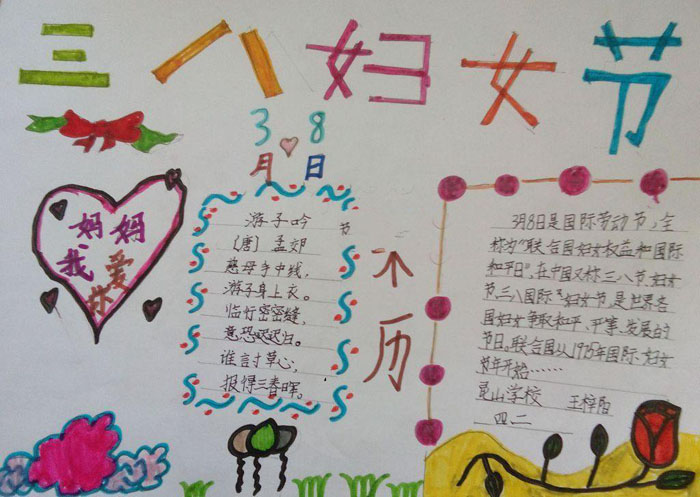 三八妇女节
3 8
月 日
妈妈
我爱
你
游子吟
(唐) 孟郊
慈母手中线,
游子身上衣。
临行密密缝,
意恐迟迟归。
谁言寸草心,
报得三春晖。
节
不
历
3月8日是国际劳动节,全
称为"联合国妇女权益和国际
和平日",在中国又称三八节、妇女
节、三八国际"妇女节,是世界各
国妇女争取和平、平等、发展的
节日。联合国从1975年国际妇女
节年开始……
昆山学校 王梓阳
四二